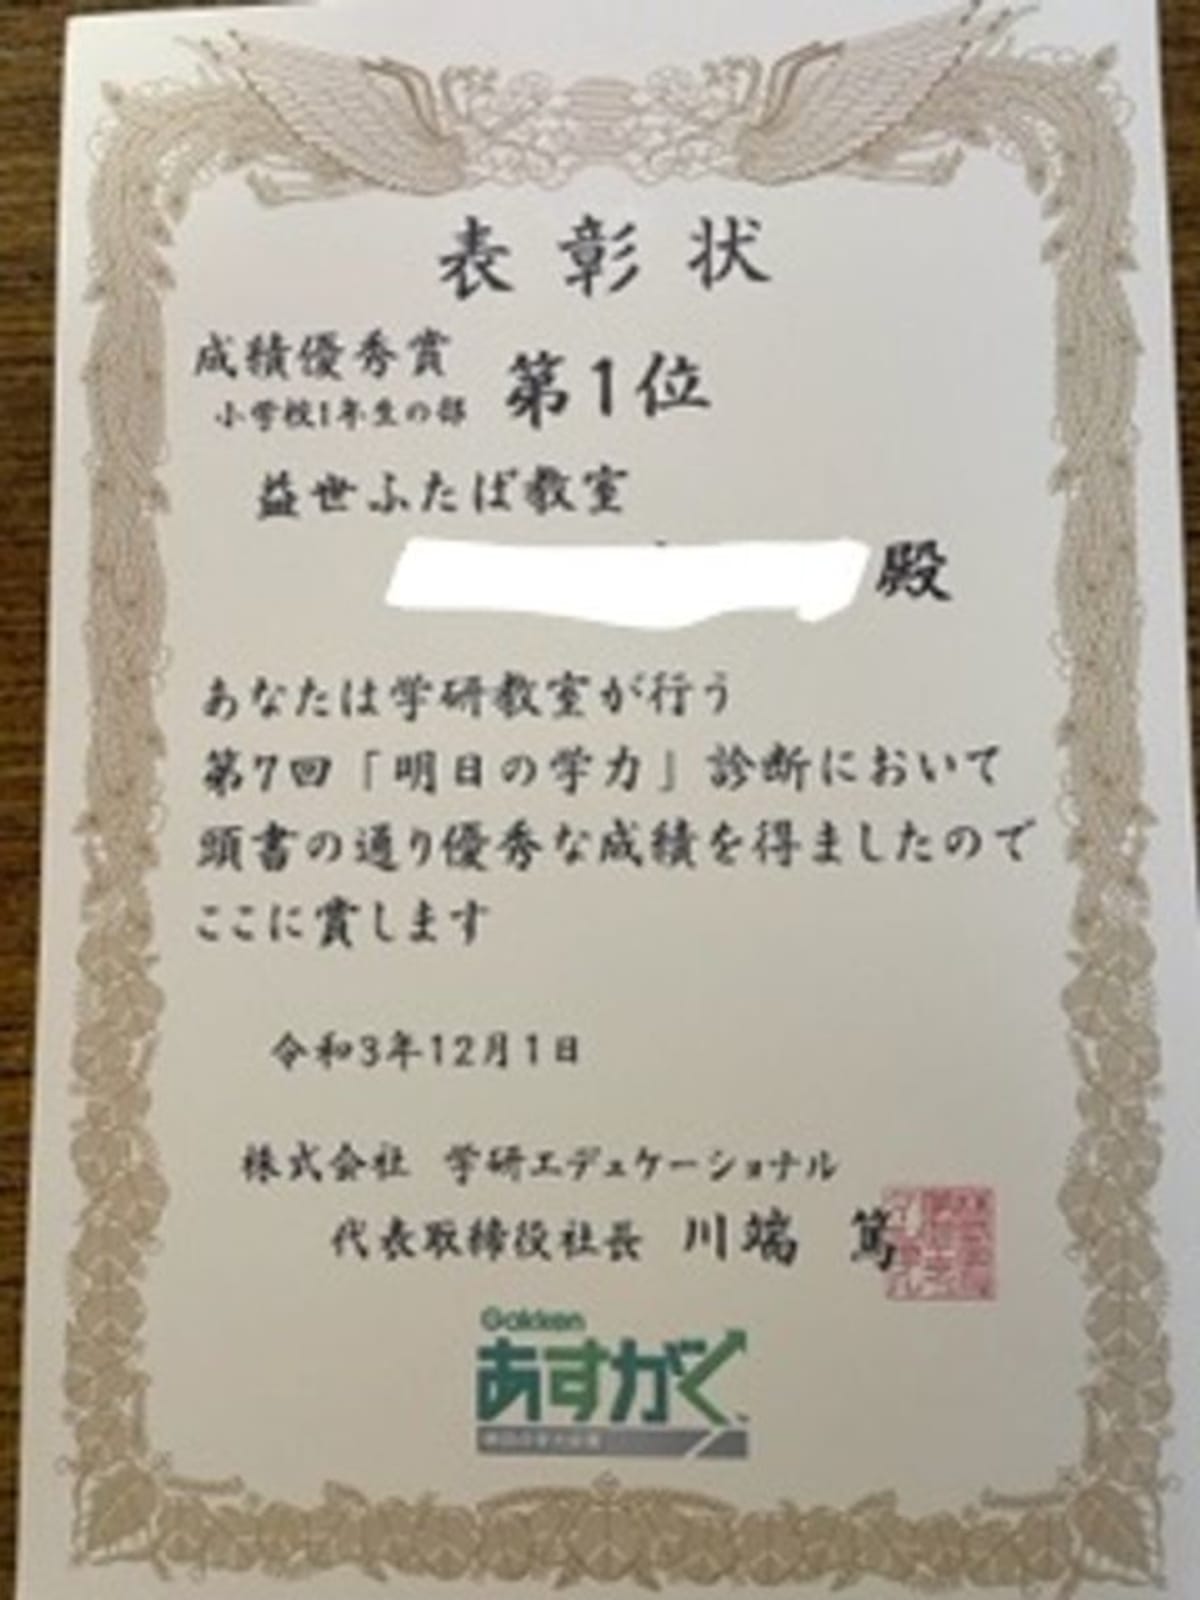 表彰状
成績優秀賞
小学校1年生の部
第1位
益世ふたば教室
殿
あなたは学研教室が行う
第7回「明日の学力」診断において
頭書の通り優秀な成績を得ましたので
ここに賞します
令和3年12月1日
株式会社 学研エデュケーショナル
代表取締役社長 川端 篤
Gakken
あすがく